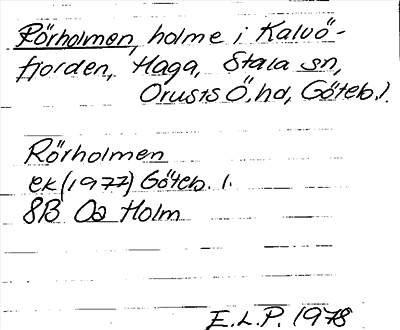 Rörholmen, holme i Kalvö-
fjorden, Haga, Stala sn,
Orusts Ö. hd, Göteb. l.
Rörholmen
ek (1977) Göteb. l.
8B 0a Holm
E.L.P. 1978